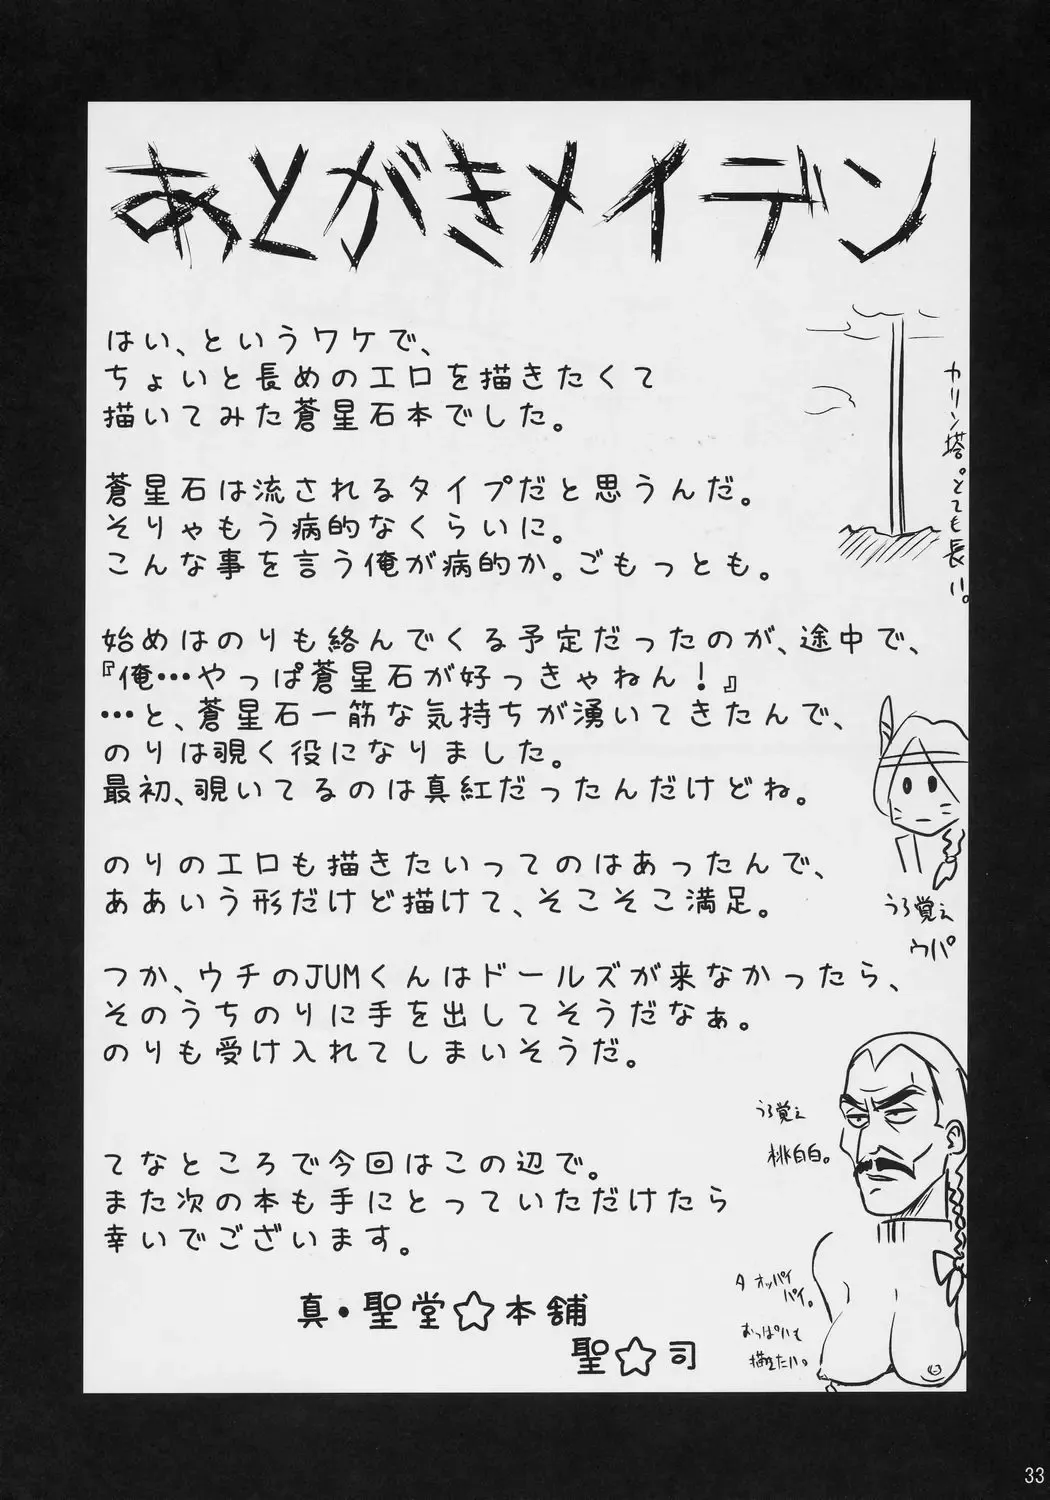 あとがきメイデン
はい、というワケで、
ちょいと長めのエロを描きたくて
描いてみた蒼星石本でした。
蒼星石は流されるタイプだと思うんだ。
そりゃもう病的なくらいに。
こんな事を言う俺が病的か。ごもっとも。
始めはのりも絡んでくる予定だったのが、途中で、
『俺…やっぱ蒼星石が好っきゃねん!』
…と、蒼星石一筋な気持ちが湧いてきたんで、
のりは覗く役になりました。
最初、覗いてるのは真紅だったんだけどね。
のりのエロも描きたいってのはあったんで、
ああいう形だけど描けて、そこそこ満足。
つか、ウチのJUMくんはドールズが来なかったら、
そのうちのりに手を出してそうだなぁ。
のりも受け入れてしまいそうだ。
てなところで今回はこの辺で。
また次の本も手にとっていただけたら
幸いでございます。
真・聖堂☆本舗
聖☆司
カリン塔。とても長い。
うろ覚え
ウパ
うろ覚え
桃白白。
タオパイ
パイ。
おっぱいも
描きたい。
33